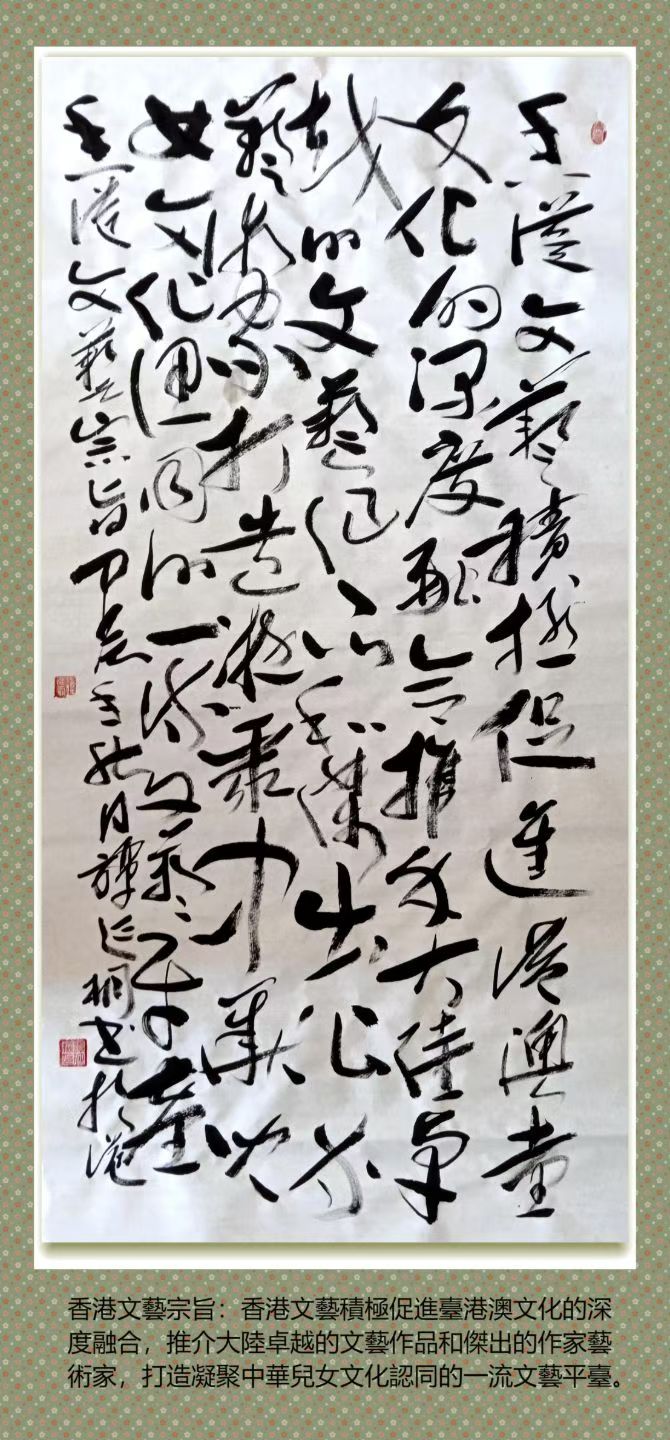 香港文藝積極促進港澳臺
文化的深度融合推介大陸卓
越的文藝作品和傑出作家
藝術家打造凝聚中華兒
女文化認同的一流文藝平臺
香港文藝宗旨甲辰年秋月譚延桐書於港
香港文藝宗旨：香港文藝積極促進臺港澳文化的深
度融合，推介大陸卓越的文藝作品和傑出的作家藝
術家，打造凝聚中華兒女文化認同的一流文藝平臺。